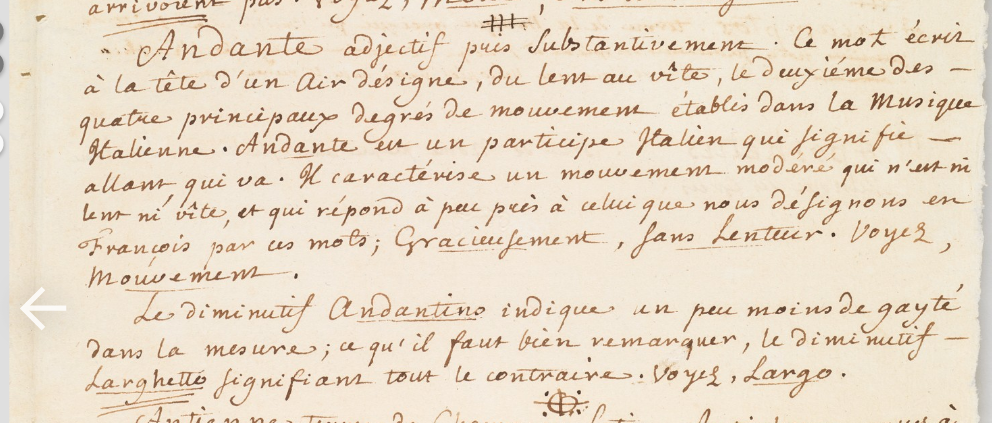 arrivoient pas. Voyez,
Andante adjectif pris Substantivement. Ce mot écrit
à la tête d'un Air désigne, du lent au vîte, le deuxiéme des —
quatre principaux degrés de mouvement établis dans la Musique
Italienne. Andante est un participe Italien qui signifie —
allant qui va. Il caractérise un mouvement modéré qui n'est ni
lent ni vîte, et qui répond à peu près à celui que nous désignons en
François par ces mots; Gracieusement, sans Lenteur. Voyez,
Mouvement.
Le diminutif Andantino indique un peu moins de gayté
dans la mesure; ce qu'il faut bien remarquer, le diminutif —
Larghetto signifiant tout le contraire. Voyez, Largo.